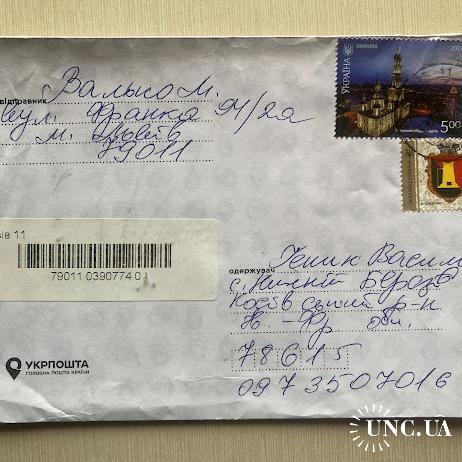 УКРАЇНА
UKRAINE
5.00
Валько М.
відправник
вул. Франка 94/2а
м. Львів
79011
ів 11
79011 0390774 0
одержувач
Геник Васил
с. Нижній Берез
Косівський р-н
Ів.-Фр. обл.
78615
0973507016
УКРПОШТА
ГОЛОВНА ПОШТА КРАЇНИ
UNC.UA